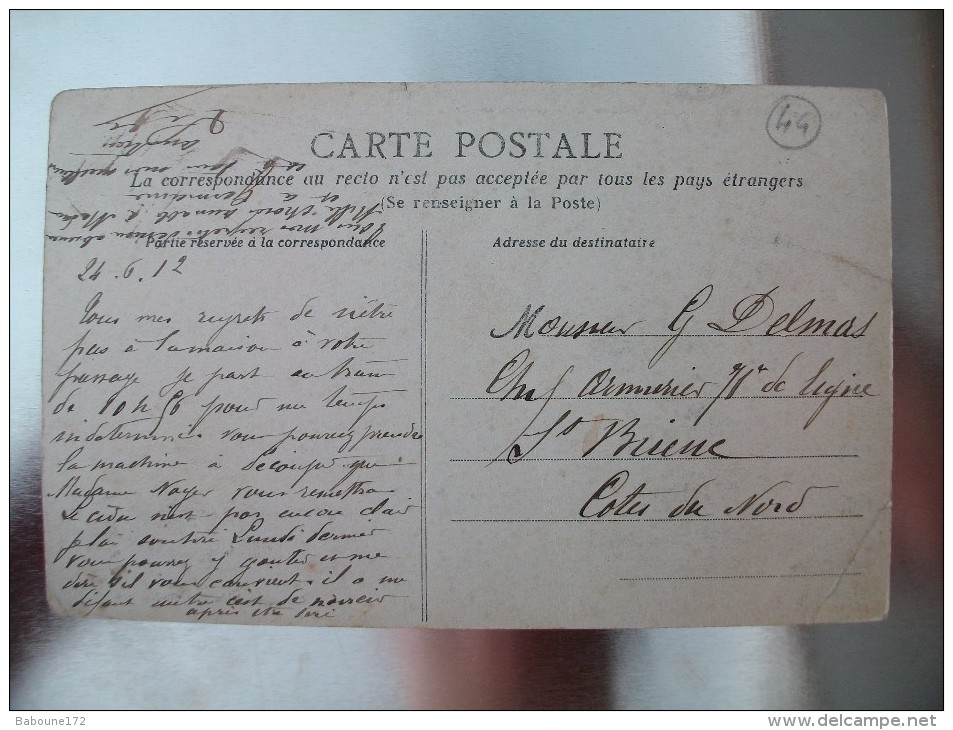 44
CARTE POSTALE
La correspondance au recto n'est pas acceptée par tous les pays étrangers
(Se renseigner à la Poste)
Partie réservée à la correspondance
Adresse du destinataire
24.6.12
Tous mes regrets de n'être
pas à la maison à votre
passage je part au train
de 10 h 56 pour un temps
indeterminé vous pourrez prendre
la machine à découper que
Madame Noyer vous remettra
Le cidre n'est pas encore clair
Lundi dernier
vous pourrez y gouter et me
dire s'il vous convient. il a un
de noircir
après
Monsieur G Delmas
Chef armurier 71e de ligne
St Brieuc
Cotes du Nord
Baboune172
www.delcampe.net